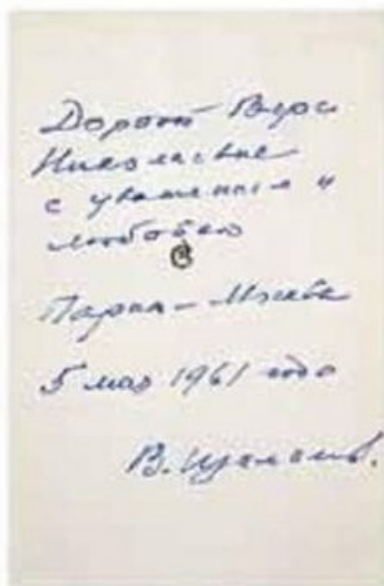 Дорогой Вере
Николаевне
с уважением и
любовью
Париж — Москва
5 мая 1961 года
В. Шаламов.